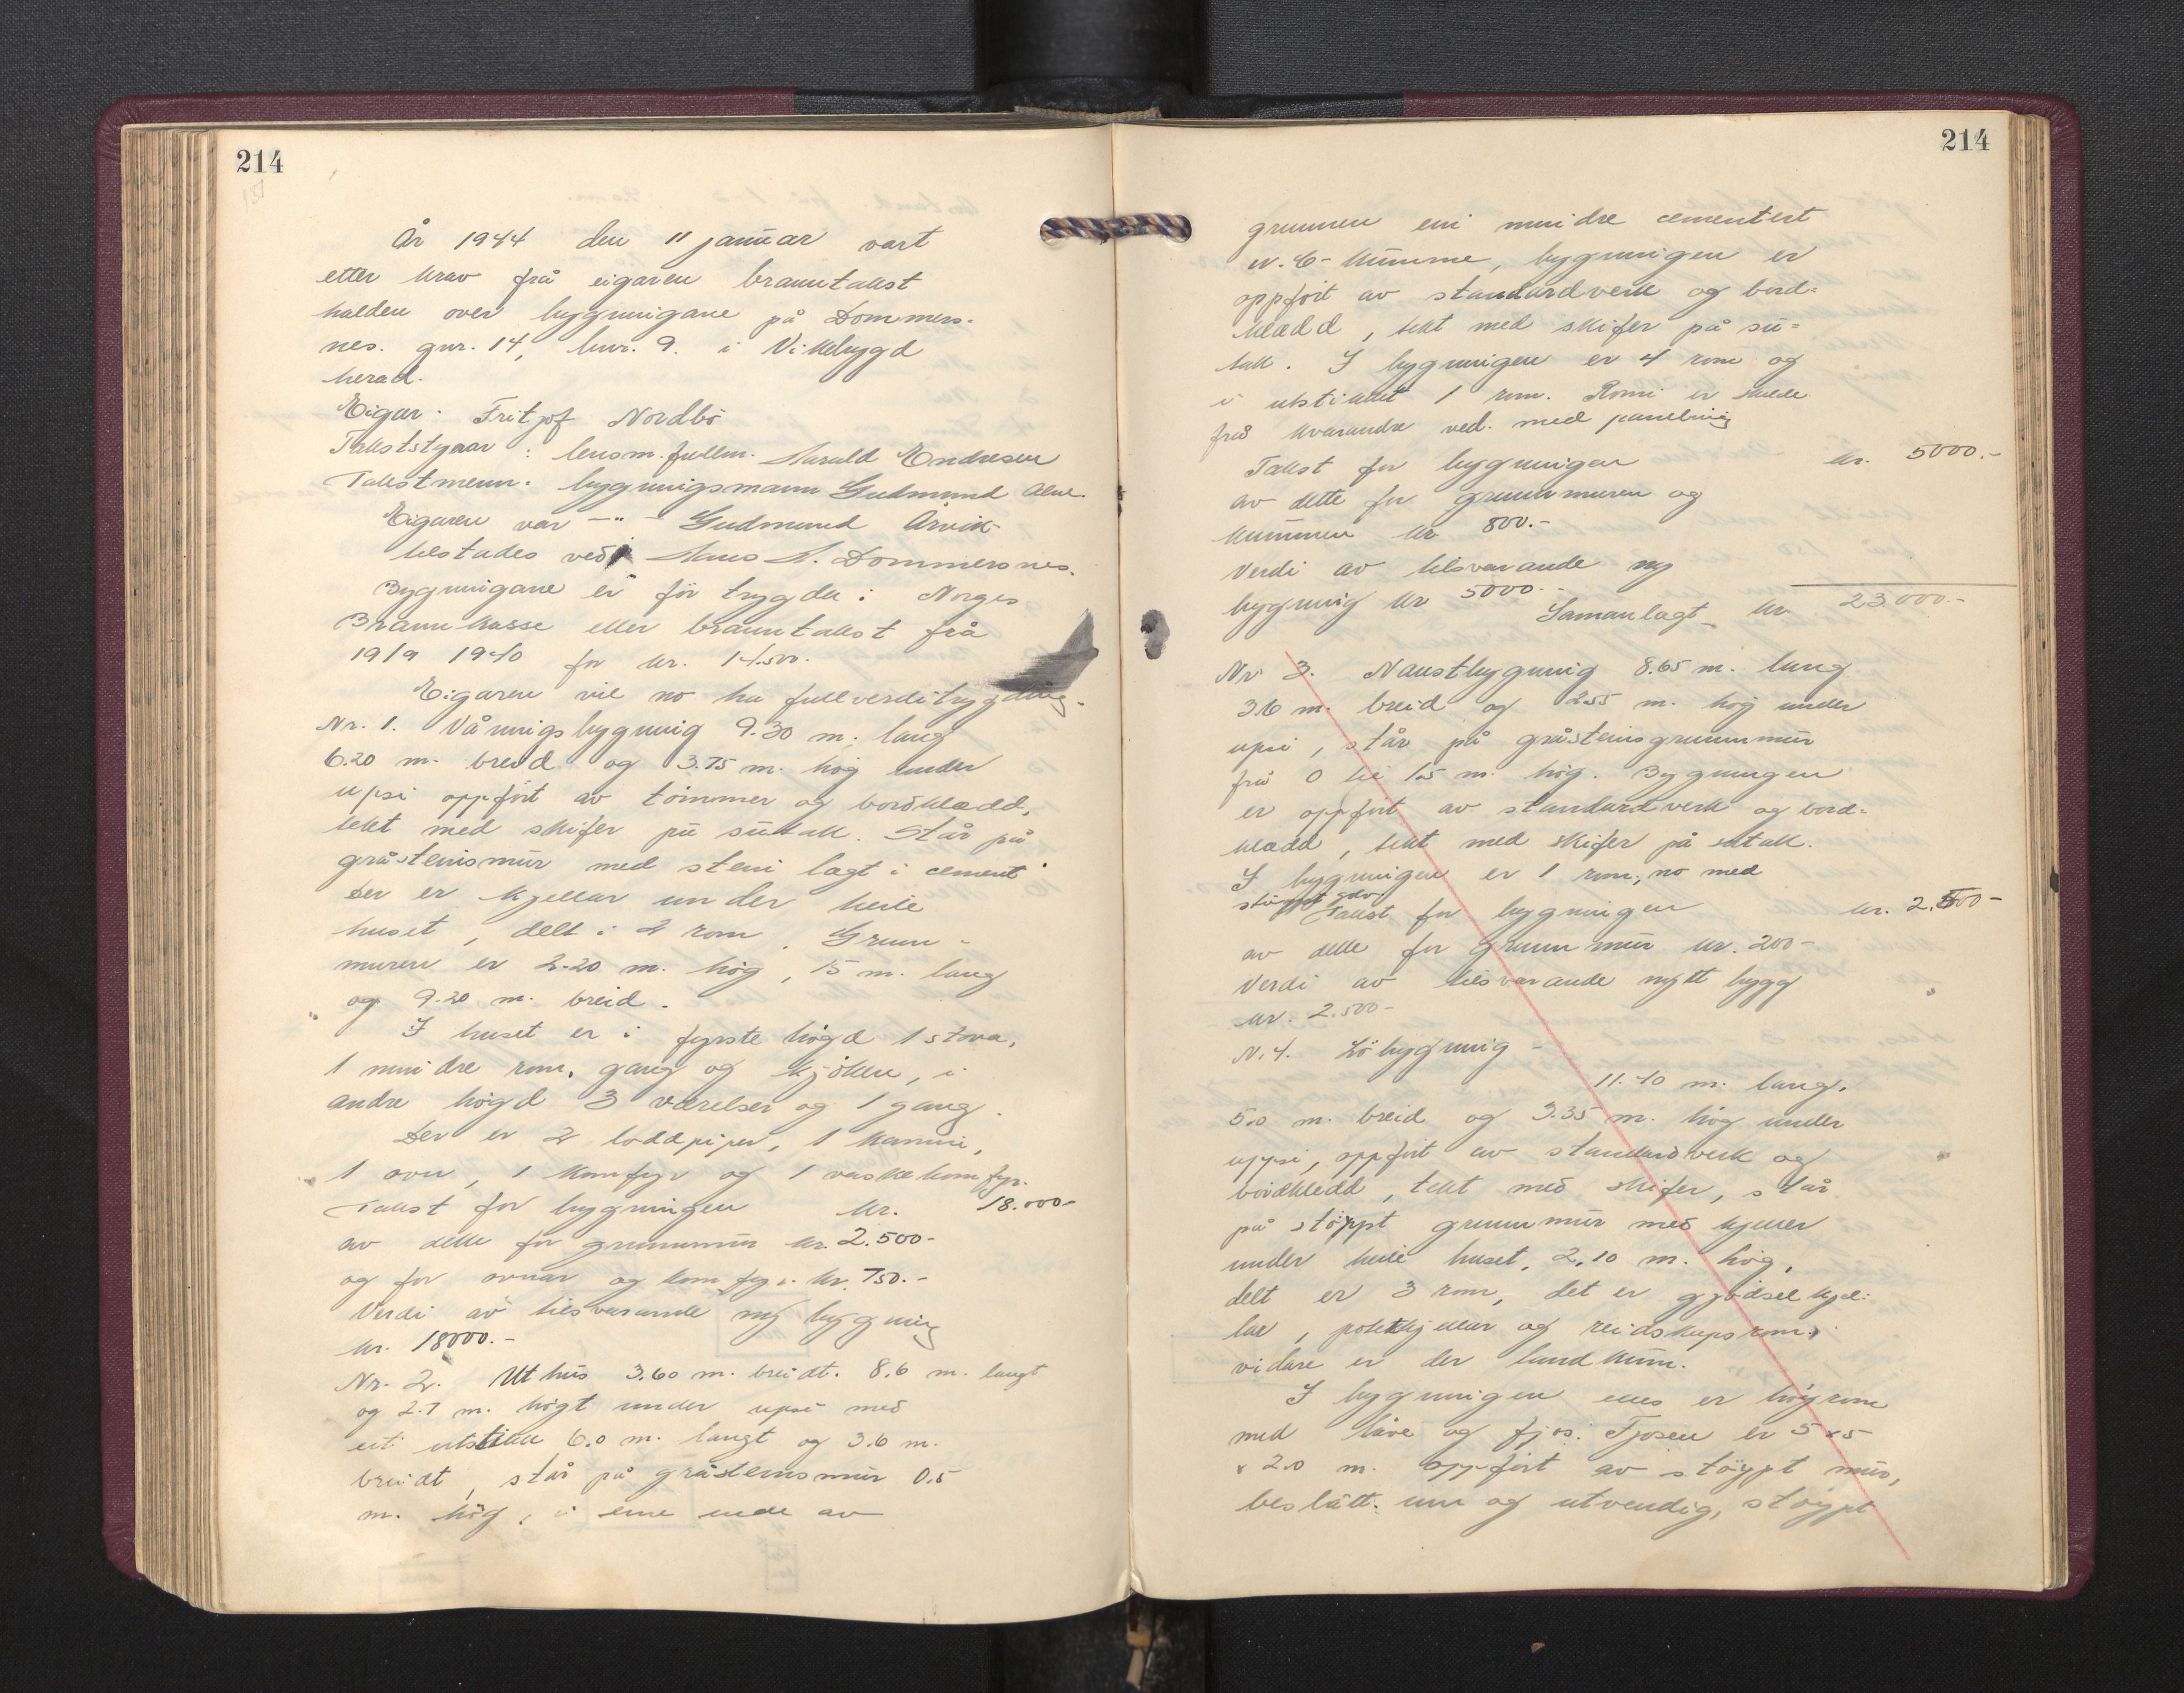 214
151
År 1944 den 11 januar vart
etter krav frå eigaren branntakst
halden over bygningane på Dommers-
nes. gnr. 14, bnr. 9. i Vikebygd
herad.
Eigar: Fritjof Nordbö
Takststyrar: lensm. fullm. Harald Endresen
Takstmenn: bygningsmann Gudmund Alne.
Eigaren var -"- Gudmund Årvik
tilstades ved Hans A. Dommersnes.
Bygningane er för trygda i Norges
Brannkasse etter branntakst frå
19/9 1940 for kr. 14.500.
Eigaren vil no ha fullverditrygding.
Nr. 1. Våningsbygning 9.30 m. lang
6.20 m. breid og 3.75 m. hög under
upsi oppfört av tömmer og bordklædd,
tekt med skifer på sutak. Står på
gråsteinsmur med stein lagt i cement.
Der er kjellar under heile
huset, delt i 2 rom. Grunn-
muren er 2.20 m. hög, 15 m. lang
og 9.20 m. breid.
I huset er i fyrste högd 1 stova,
1 mindre rom, gang og kjöken, i
andre högd 3 værelser og 1 gang.
Der er 2 loddpiper, 1 kamin,
1 ovn, 1 komfyr og 1 vaskekomfyr.
Takst for bygningen kr. 18.000-
av dette for grunnmur kr. 2.500-
og for ovnar og komfyr. kr. 750.-
Verdi av tilsvarande ny bygning
kr. 18000.-
Nr. 2. Uthus 3.60 m. breidt. 8.6 m. langt
og 2.7 m. högt under upsi med
eit utstikk 6.0 m. langt og 3.6 m.
breidt, står på gråsteinsmur 0.5
m. hög, i eine ende av
214
grunnen ein mindre cementert
W.C-kumme, bygningen er
oppfört av standardverk og bord-
klædd, tekt med skifer på su-
tak. I bygningen er 4 rom og
i utstikket 1 rom. Romi er skilde
frå kvarandre ved. med panelning
Takst for bygningen kr. 5000.-
av dette for grunnmuren og
kummen kr 800.-
Verdi av tilsvarande ny
bygning kr 5000.-
Samanlagt kr 23000-
Nr 3. Naustbygning 8.65 m. lang
3.6 m. breid og 2.55 m. hög under
upsi, står på gråsteinsgrunnmur
frå 0 til 1.5 m. hög. Bygningen
er oppfört av standardverk og bord-
klædd, tekt med skifer på sutak.
I bygningen er 1 rom, no med
stöypt golv.
Takst for bygningen kr. 2.500-
av dette for grunnmur kr. 200-
Verdi av tilsvarande nytt bygg
kr. 2.500-
N. 4. Löbygning -
11.40 m. lang,
5.0 m. breid og 3.35 m. hög under
uppsi, oppfört av standardverk og
bordkledd, tekt med skifer, står
på stöypt grunnmur med kjeller
under heile huset, 2,10 m. hög,
delt er 3 rom, det er gjödselkjel-
lar, potetkjellar og reidskapsrom,
vidare er der landkum.
I bygningen elles er höyrom
med låve og fjös. Fjosen er 5x5
x 2.0 m. oppfört av stöypt mur,
beslått. inn og utvendig, stöypt